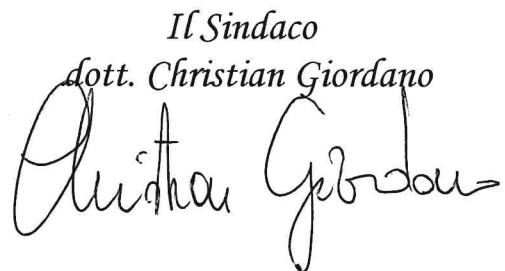 Il Sindaco
dott. Christian Giordano
Christian Giordano